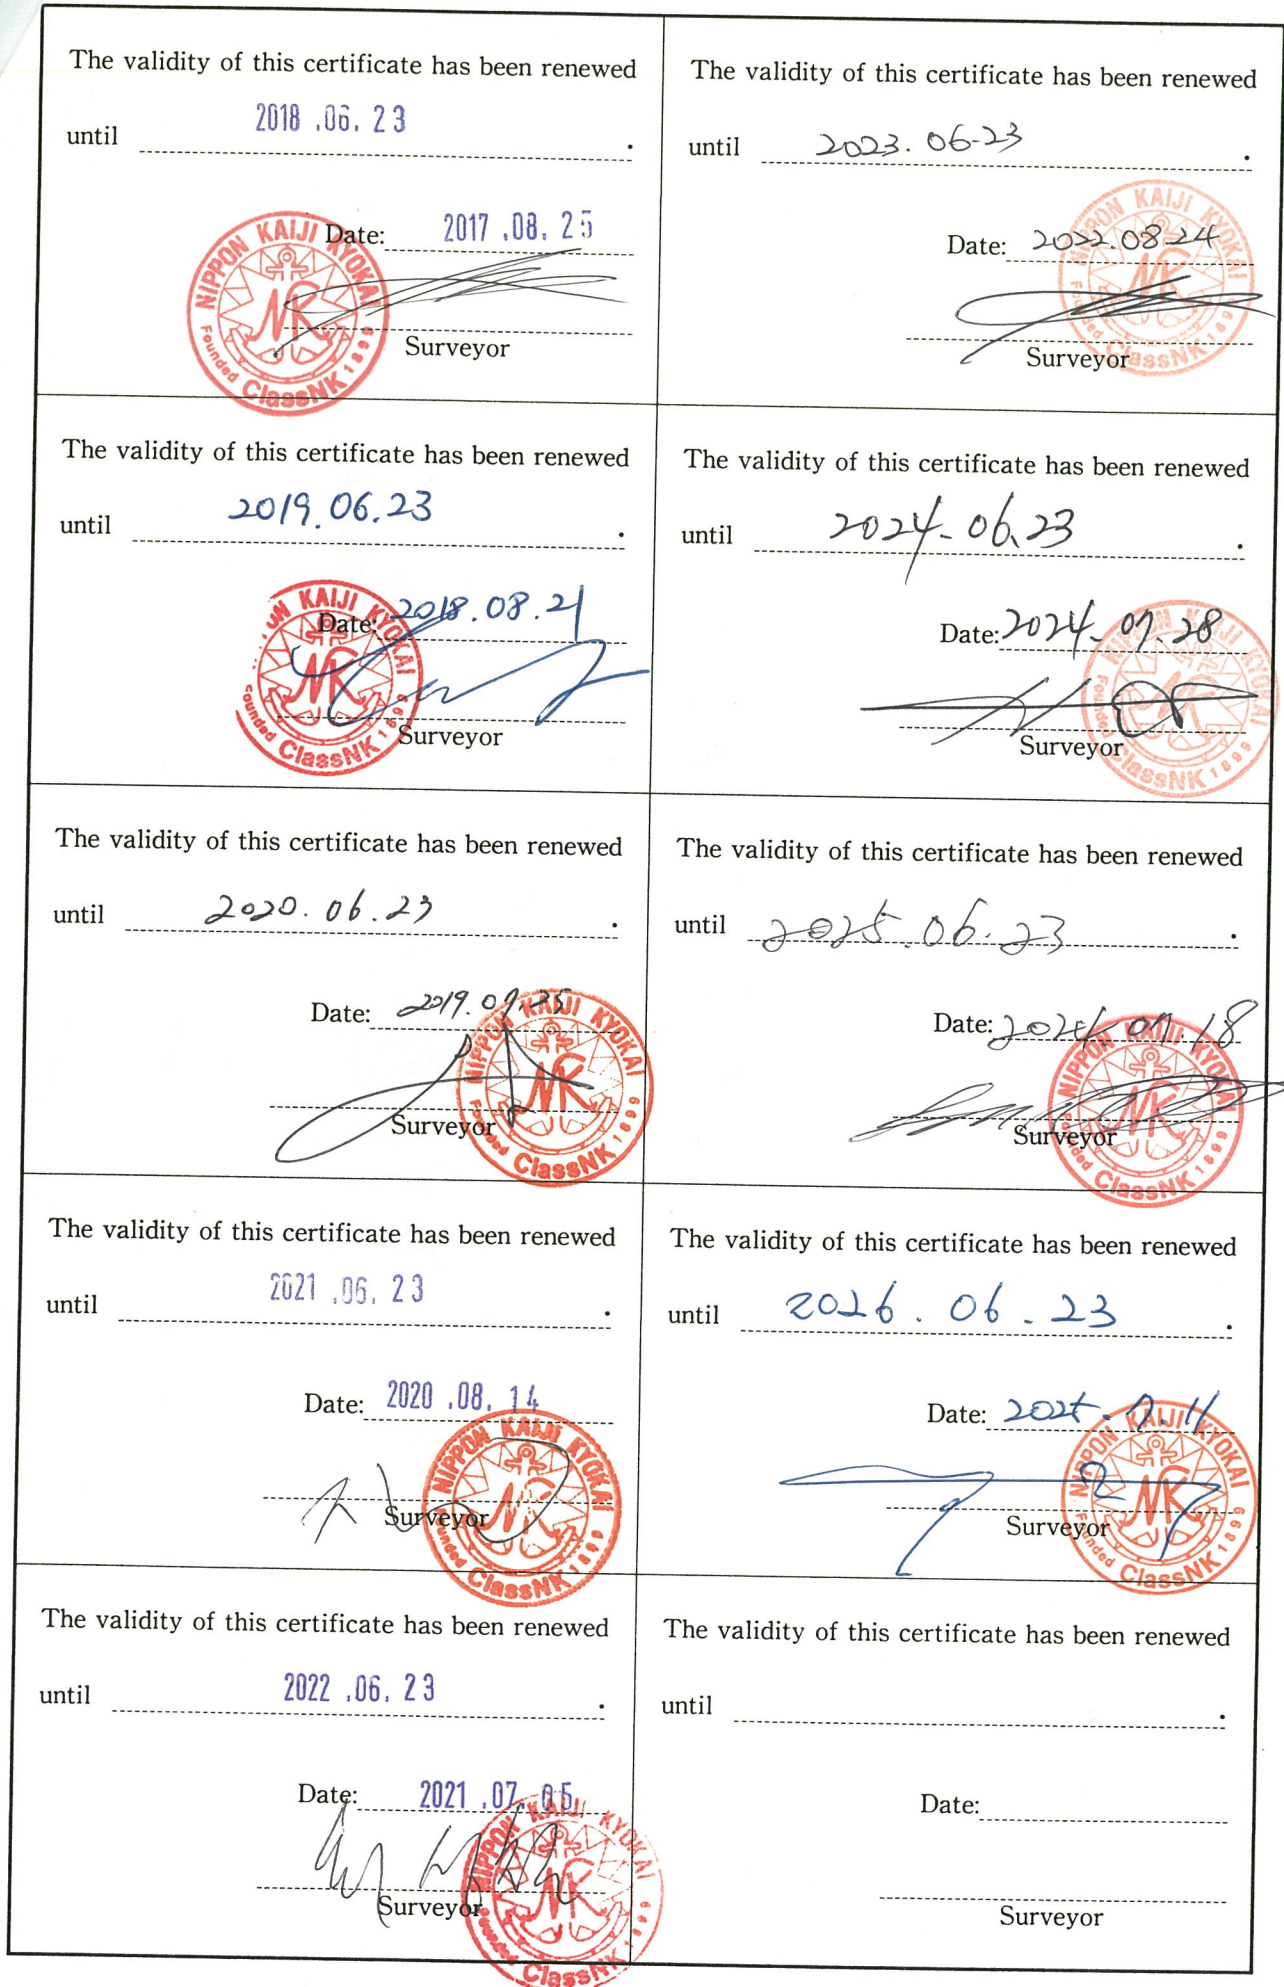 The validity of this certificate has been renewed
until 2018 .06. 23 .
Date: 2017 .08. 25
Surveyor
NIPPON KAIJI KYOKAI
Founded ClassNK 1899
The validity of this certificate has been renewed
until 2019.06.23 .
Date: 2018.08.21
Surveyor
NIPPON KAIJI KYOKAI
Founded ClassNK 1899
The validity of this certificate has been renewed
until 2020.06.23 .
Date: 2019.07.25
Surveyor
NIPPON KAIJI KYOKAI
Founded ClassNK 1899
The validity of this certificate has been renewed
until 2021 .06. 23 .
Date: 2020 .08. 14
Surveyor
NIPPON KAIJI KYOKAI
Founded ClassNK 1899
The validity of this certificate has been renewed
until 2022 .06. 23 .
Date: 2021 .07. 05
Surveyor
NIPPON KAIJI KYOKAI
Founded ClassNK 1899
The validity of this certificate has been renewed
until 2023.06-23 .
Date: 2022.08-24
Surveyor
NIPPON KAIJI KYOKAI
Founded ClassNK 1899
The validity of this certificate has been renewed
until 2024-06.23 .
Date: 2024-07.28
Surveyor
NIPPON KAIJI KYOKAI
Founded ClassNK 1899
The validity of this certificate has been renewed
until 2025.06.23 .
Date: 2024.07.18
Surveyor
NIPPON KAIJI KYOKAI
Founded ClassNK 1899
The validity of this certificate has been renewed
until 2026.06.23 .
Date: 2025.7.11
Surveyor
NIPPON KAIJI KYOKAI
Founded ClassNK 1899
The validity of this certificate has been renewed
until .
Date:
Surveyor